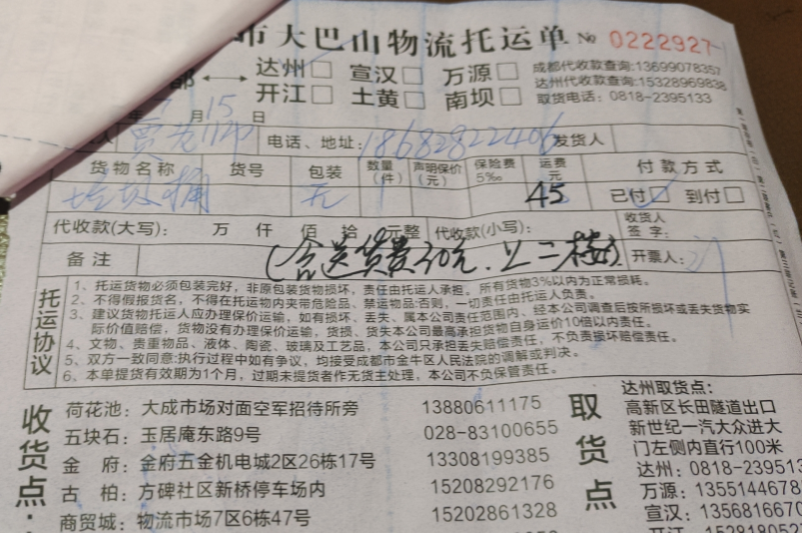 市大巴山物流托运单 No 0222927
部 ↔ 达州□ 宣汉□ 万源□ 成都代收款查询:13699078357
达州代收款查询:15328969838
开江□ 土黄□ 南坝□ 取货电话：0818-2395133
年 月15日
人 贾 电话、地址: 18682822406 发货人
货物名称 货号 包装 数量(件) 声明保价(元) 保险费5‰ 运费元 付款方式
垃圾桶 无 1 45 已付☑ 到付□
代收款(大写): 万 仟 佰 拾 元整 代收款(小写): 收货人签字:
备注 (含送货费30元.上二楼) 开票人:
托运协议
1、托运货物必须包装完好，非原包装货物损坏，责任由托运人承担。所有货物3%以内为正常损耗。
2、不得假报货名，不得在托运物内夹带危险品、禁运物品;否则，一切责任由托运人负责。
3、建议货物托运人应办理保价运输，如有损坏、丢失、属本公司责任范围内、经本公司调查后按所损坏或丢失货物实
际价值赔偿，货物没有办理保价运输，货损、货失本公司最高承担货物自身运价10倍以内责任。
4、文物、贵重物品、液体、陶瓷、玻璃及工艺品，本公司只承担丢失赔偿责任，不负责损坏赔偿责任。
5、双方一致同意:执行过程中如有争议，均接受成都市金牛区人民法院的调解或判决。
6、本单提货有效期为1个月，过期未提货者作无货主处理，本公司不负保管责任。
收货点:
荷花池：大成市场对面空军招待所旁 13880611175
五块石：玉居庵东路9号 028-83100655
金 府：金府五金机电城2区26栋17号 13308199385
古 柏：方碑社区新桥停车场内 15208292176
商贸城：物流市场7区6栋47号 15202861328
取货点
达州取货点：
高新区长田隧道出口
新世纪一汽大众进大
门左侧内直行100米
达州：0818-239513
万源：1355144678
宣汉：1356816670
开江